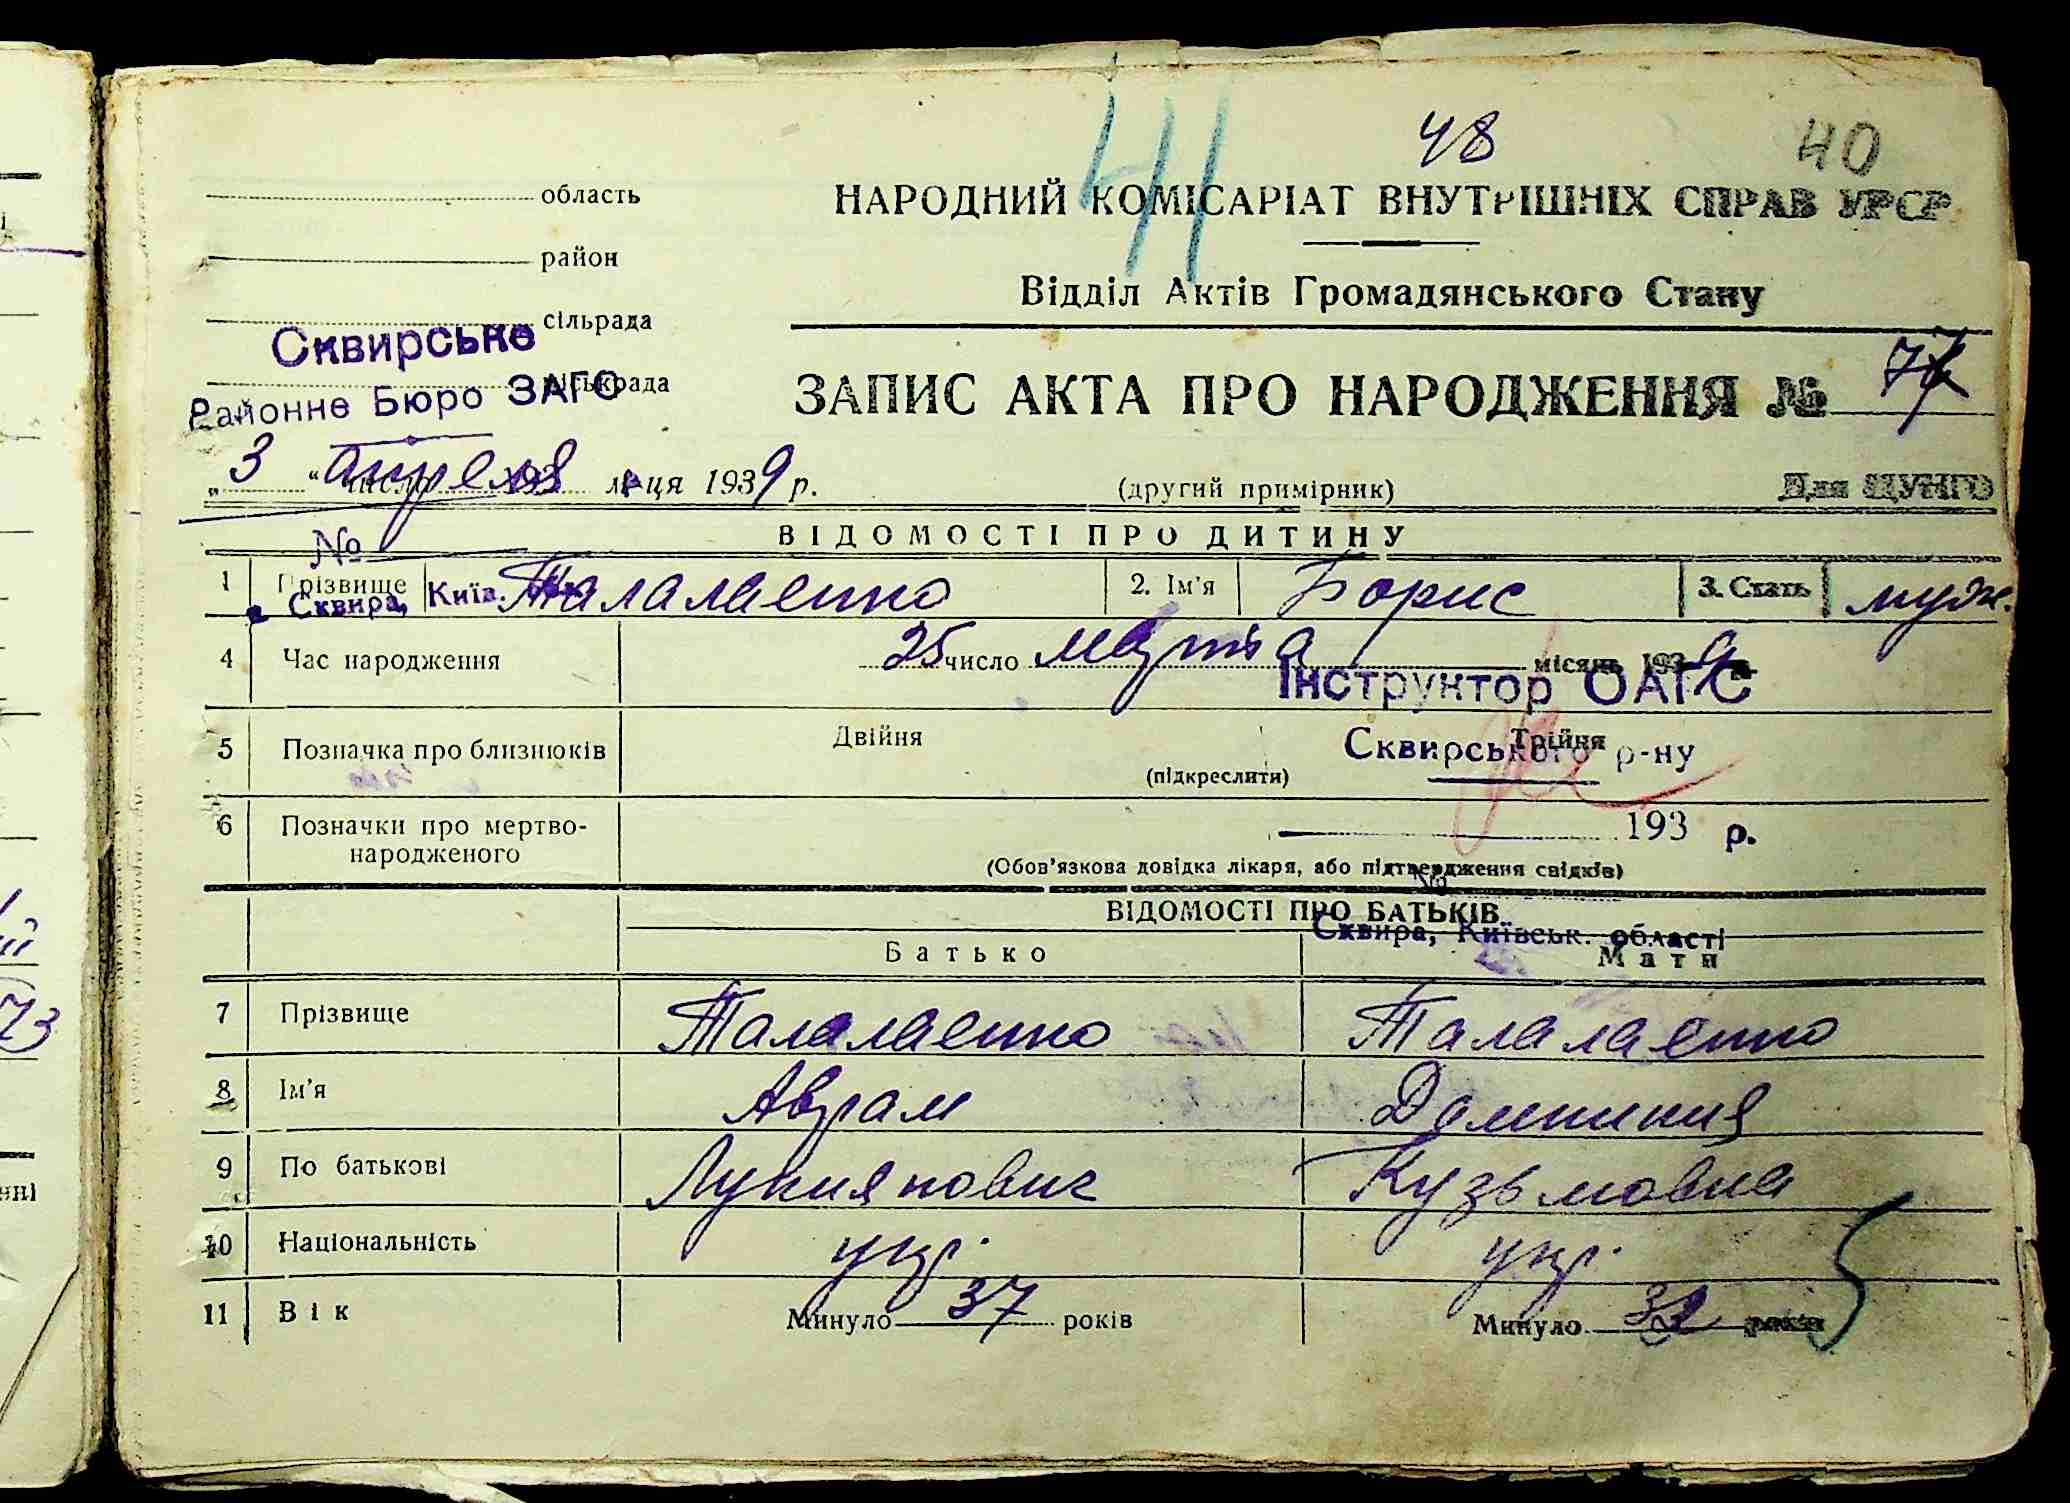 41 48 40
область
район
сільрада
міськрада
НАРОДНИЙ КОМІСАРІАТ ВНУТРІШНІХ СПРАВ УРСР
Відділ Актів Громадянського Стану
Сквирське
Районне Бюро ЗАГС
ЗАПИС АКТА ПРО НАРОДЖЕННЯ №
„3“ апреля число м-ця 1939 р.
(другий примірник)
Для ЦУНГО
№
ВІДОМОСТІ ПРО ДИТИНУ
1 Прізвище Талалаенко 2. Ім'я Борис 3. Стать муж.
Сквира, Київ.
4 Час народження 25 число марта місяць 1939
Інструктор ОАГС
5 Позначка про близнюків Двійня (підкреслити) Трійня
Сквирського р-ну
6 Позначки про мертво-
народженого
193 р.
(Обов'язкова довідка лікаря, або підтвердження свідків)
№
ВІДОМОСТІ ПРО БАТЬКІВ
Сквира, Київськ. області
Батько Мати
7 Прізвище Талалаенко Талалаенко
8 Ім'я Аврам Домникия
9 По батькові Лукиянович Кузьмовна
10 Національність укр. укр.
11 Вік Минуло 37 років Минуло років
5
73